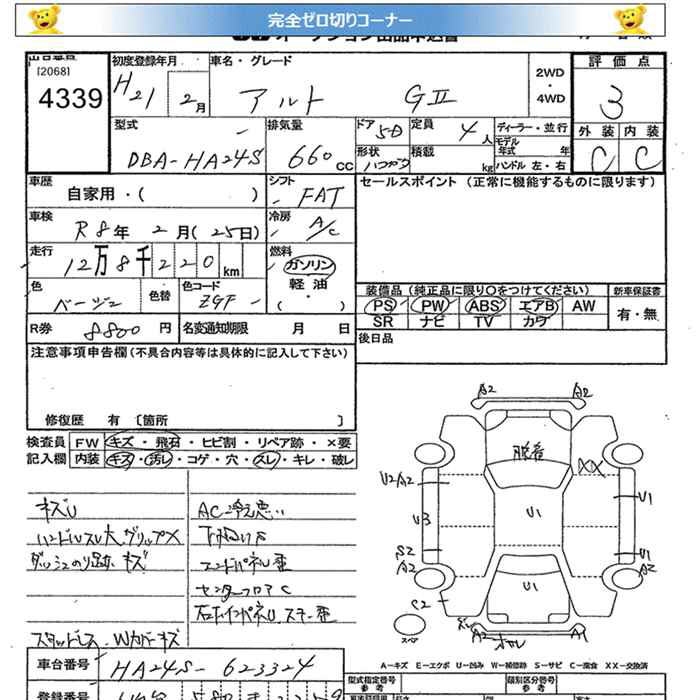 完全ゼロ切りコーナー
出品番号
[2068]
4339
初度登録年月
H21 2月
車名・グレード
アルト GⅡ
2WD
・
4WD
評価点
3
外装 内装
C C
型式
DBA-HA24S
排気量
660 cc
ドア 5D
形状
定員 4人
積載 kg
ディーラー・並行
モデル年式 年
ハンドル 左・右
車歴
自家用・( )
シフト
FAT
セールスポイント (正常に機能するものに限ります)
車検
R8年 2月(25日)
冷房
A/C
走行
12万8千220km
燃料
ガソリン
軽油
・( )
色
ベージュ
色替
色コード
ZGF
装備品(純正品に限り○をつけてください)
PS PW ABS エアB AW
SR ナビ TV カワ
新車保証書
有・無
R券 8800円
名変通知期限 月 日
後日品
注意事項申告欄(不具合内容等は具体的に記入して下さい)
修復歴 有〔箇所 〕
検査員 FW キズ・飛石・ヒビ割・リペア跡・×要
記入欄 内装 キズ・汚れ・コゲ・穴・スレ・キレ・破レ
キズU
ハンドルスレ大、グリップ×
ダッシュのり跡、キズ
スタッドレス Wカバーキズ
AC冷え悪い
下回りS
エンドパネル歪
センターフロアC
A2 A2
脱着
XX
U2A2
U1
U3
U1
S2
A2
U1
U1
A2
S2
A2
A1
スペア
A-キズ E-エクボ U-凹み W-補修跡 S-サビ C-腐食 XX-交換済
車台番号 HA24S-623324
型式指定番号
参考
類別区分番号
参考
登録番号